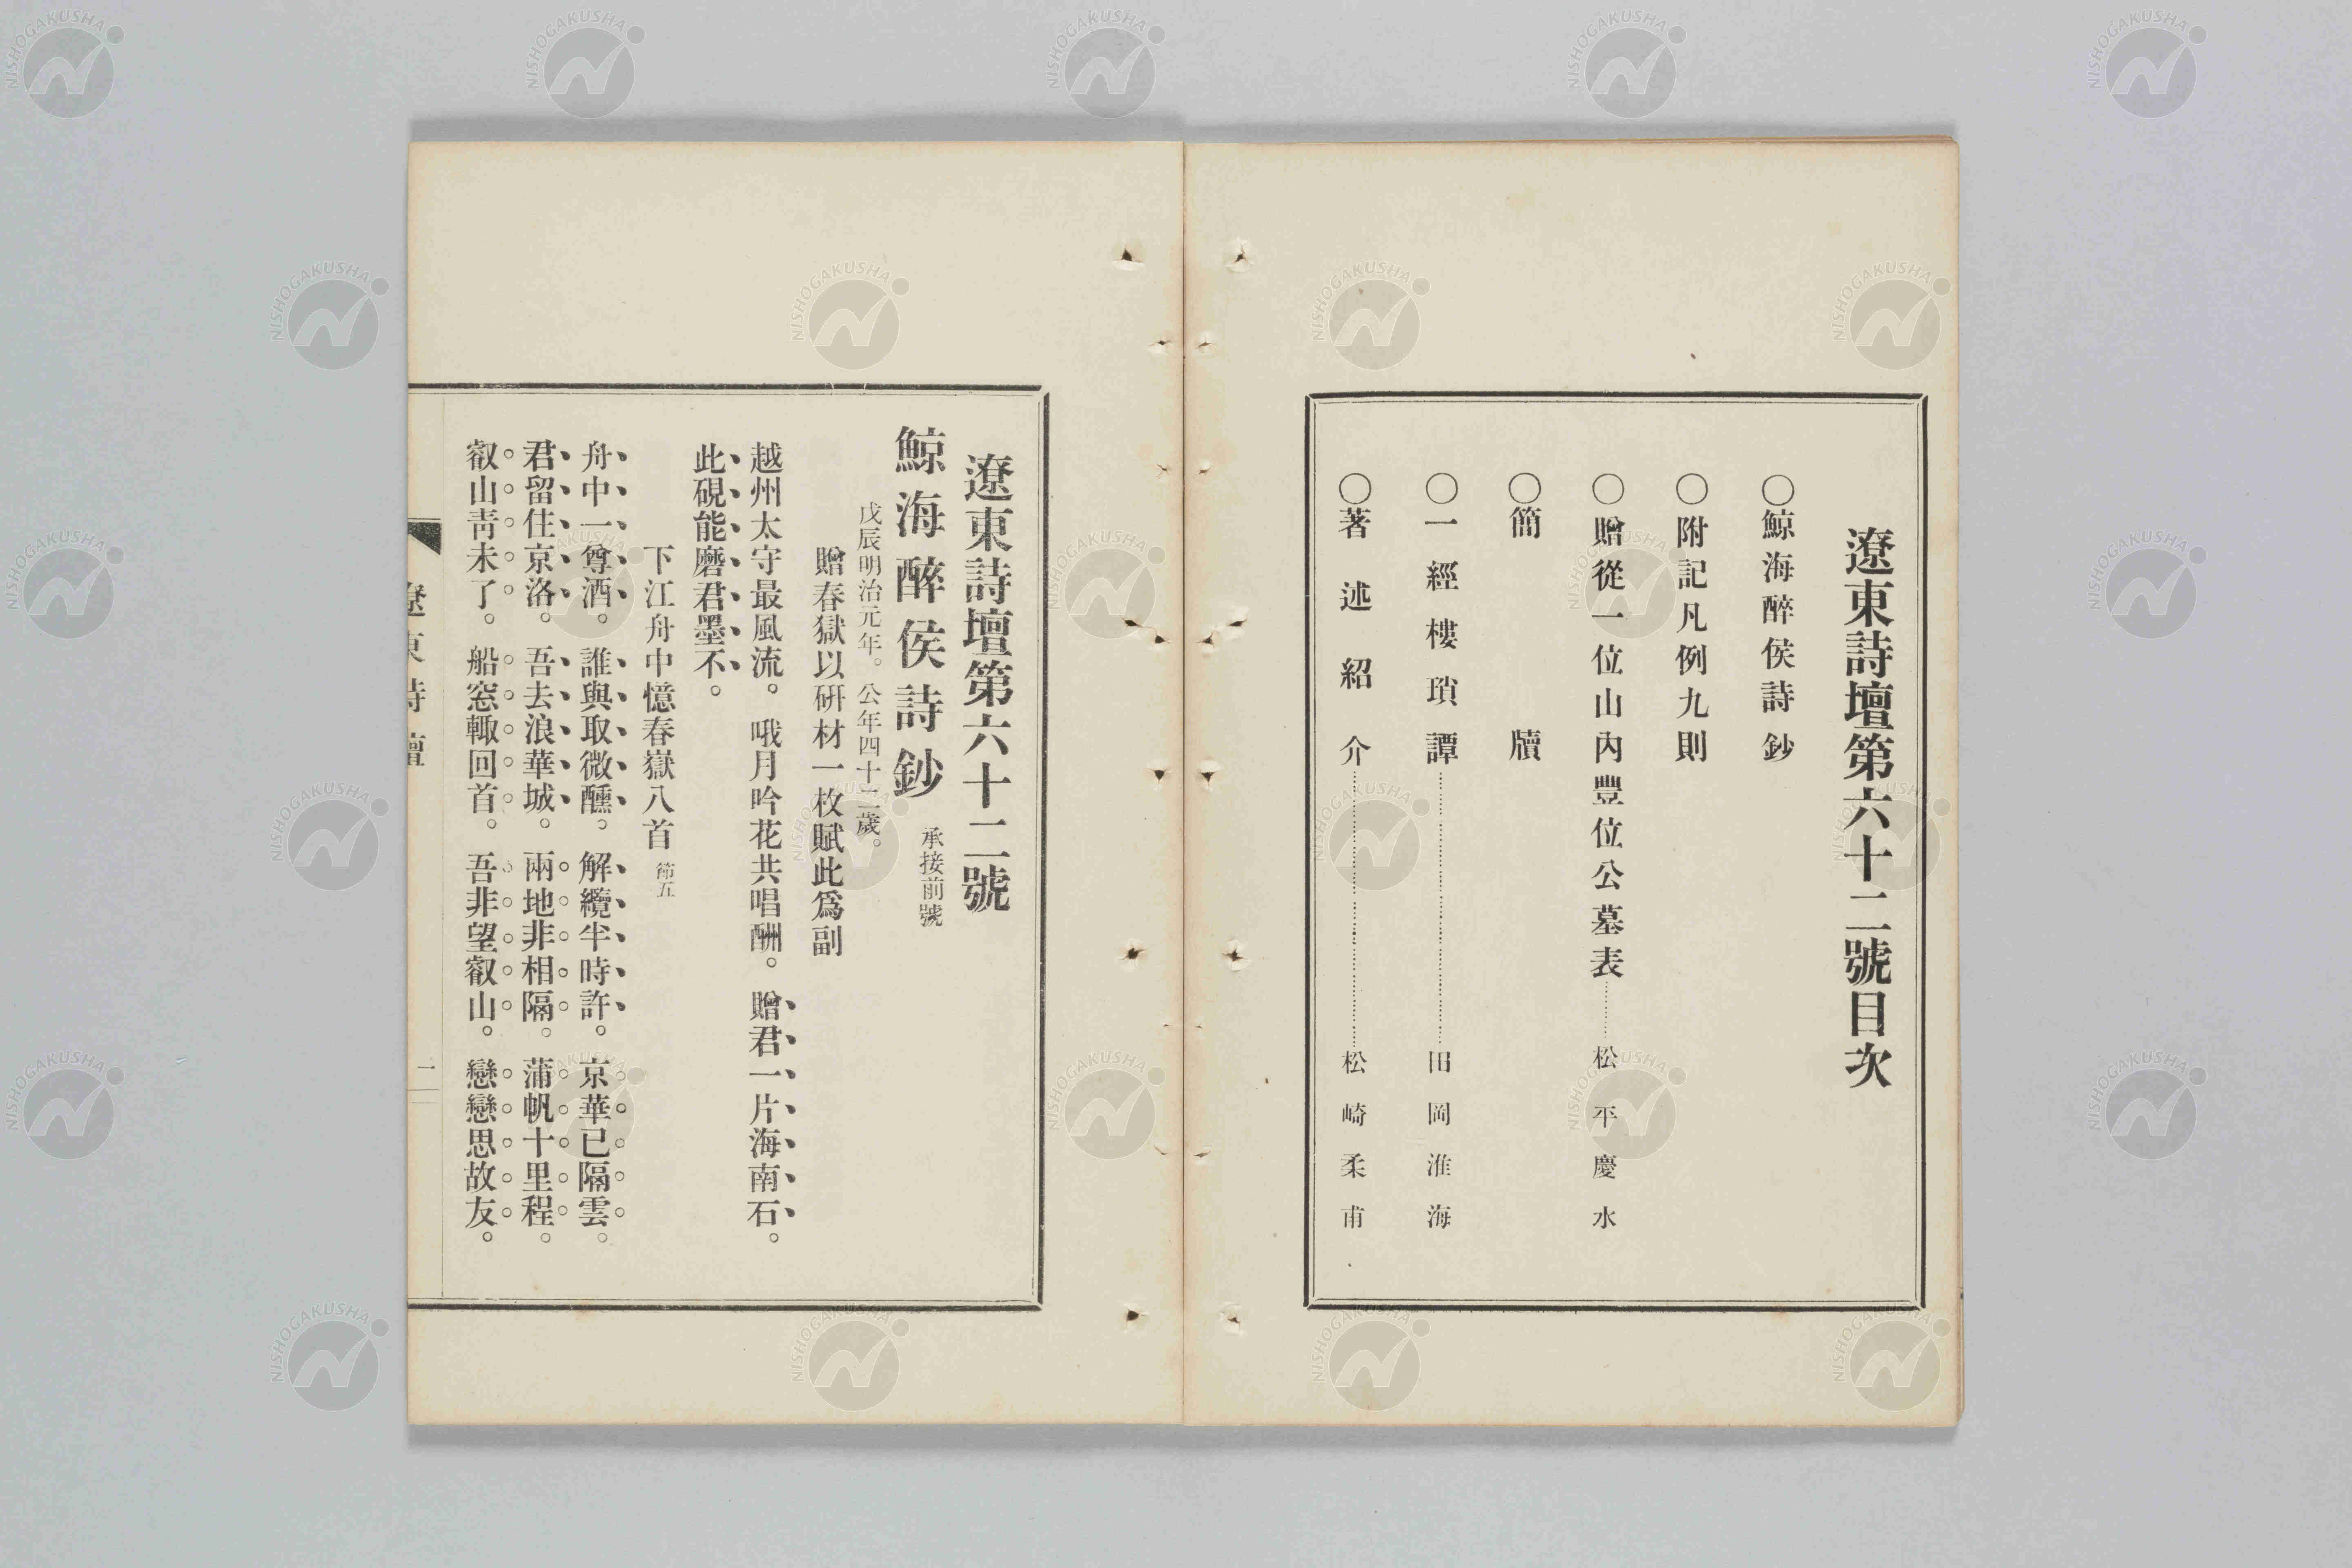 遼東詩壇第六十二號目次
〇鯨海醉侯詩鈔
〇附記凡例九則
〇贈從一位山內豐位公墓表………松平慶水
〇簡牘
〇一經樓瑣譚………旧岡淮海
〇著述紹介………松崎柔甫
遼東詩壇第六十二號
鯨海醉侯詩鈔 承接前號
戊辰明治元年。公年四十二歲。
贈春獄以硏材一枚賦此爲副
越州太守最風流。哦月吟花共唱酬。贈君一片海南石。
此硯能磨君墨不。
下江舟中憶春嶽八首 節五
舟中一尊酒。誰與取微醺。解纜半時許。京華已隔雲。
君留住京洛。吾去浪華城。兩地非相隔。蒲帆十里程。
叡山靑未了。船窓輙回首。吾非望叡山。戀戀思故友。
遼東詩壇
一
NISHOGAKUSHA